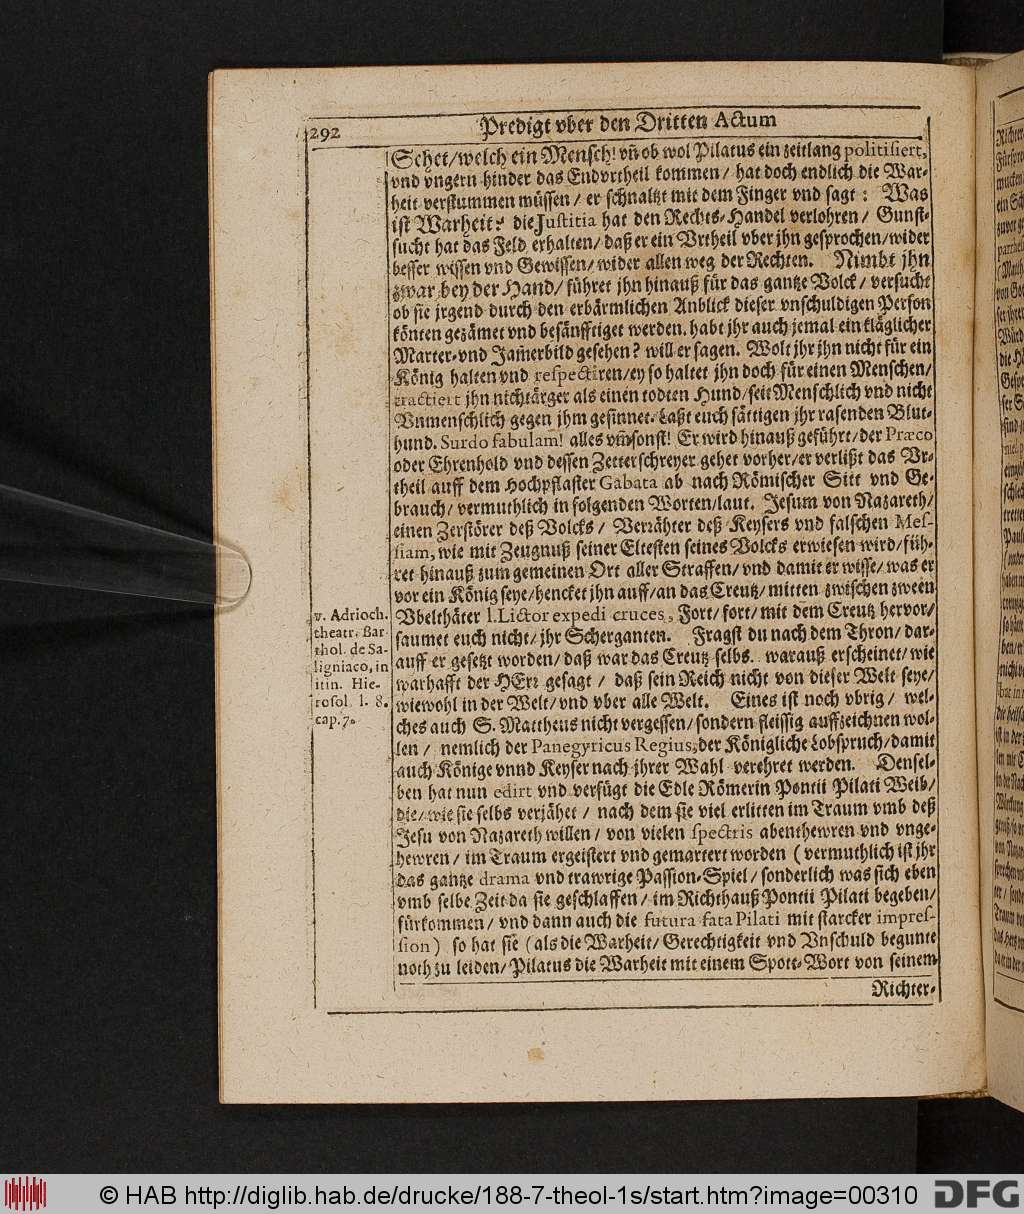 292
Predigt vber den Dritten Actum
Sehet/welch ein Mensch! vñ ob wol Pilatus ein zeitlang politisiert,
vnd vngern hinder das Endvrtheil kommen/ hat doch endlich die War-
heit verstummen müssen/ er schnaltzt mit dem Finger vnd sagt: Was
ist Warheit? die Justitia hat den Rechts-Handel verlohren/ Gunst-
sucht hat das Feld erhalten/ daß er ein Vrtheil vber jhn gesprochen/wider
besser wissen vnd Gewissen/ wider allen weg der Rechten. Nimbt jhn
zwar bey der Hand/ führet jhn hinauß für das gantze Volck/ versucht
ob sie jrgend durch den erbärmlichen Anblick dieser vnschuldigen Person
könten gezämet vnd besänfftiget werden. habt jhr auch jemal ein kläglicher
Marter- vnd Jam̃erbild gesehen? will er sagen. Wolt jhr jhn nicht für ein
König halten vnd respectiren/ ey so haltet jhn doch für einen Menschen/
tractiert jhn nicht ärger als einen todten Hund/ seit Menschlich vnd nicht
Vnmenschlich gegen jhm gesinnet. Laßt euch sättigen jhr rasenden Blut-
hund. Surdo fabulam! alles vm̃sonst! Er wird hinauß geführt/ der Præco
oder Ehrenhold vnd dessen Zetterschreyer gehet vorher/ er verlißt das Vr-
theil auff dem Hochpflaster Gabata ab nach Römischer Sitt vnd Ge-
brauch/ vermuthlich in folgenden Worten/laut. Jesum von Nazareth/
einen Zerstörer deß Volcks/ Verrähter deß Keysers vnd falschen Mes-
siam, wie mit Zeugnuß seiner Eltesten seines Volcks erwiesen wird/ füh-
ret hinauß zum gemeinen Ort aller Straffen/ vnd damit er wisse/ was er
vor ein König seye/ hencket jhn auff/ an das Creutz/ mitten zwischen zween
Vbelthäter l. Lictor expedi cruces, Fort/ fort/ mit dem Creutz hervor/
saumet euch nicht/ jhr Scherganten. Fragst du nach dem Thron/ dar-
auff er gesetzt worden/ daß war das Creutz selbs. warauß erscheinet/ wie
warhafft der HErr gesagt/ daß sein Reich nicht von dieser Welt seye/
wiewohl in der Welt/ vnd vber alle Welt. Eines ist noch vbrig/ wel-
ches auch S. Mattheus nicht vergessen/ sondern fleissig auffzeichnen wol-
len/ nemlich der Panegyricus Regius, der Königliche Lobspruch/ damit
auch Könige vnnd Keyser nach jhrer Wahl verehret werden. Densel-
ben hat nun edirt vnd verfügt die Edle Römerin Pontii Pilati Weib/
die/ wie sie selbs verjähet/ nach dem sie viel erlitten im Traum vmb deß
Jesu von Nazareth willen/ von vielen spectris abenthewren vnd vnge-
hewren/ im Traum ergeistert vnd gemartert worden ( vermuthlich ist jhr
das gantze drama vnd trawrige Passion-Spiel/ sonderlich was sich eben
vmb selbe Zeit da sie geschlaffen/ im Richthauß Pontii Pilati begeben/
fürkommen/ vnd dann auch die futura fata Pilati mit starcker impres-
sion) so hat sie ( als die Warheit/ Gerechtigkeit vnd Vnschuld begunte
noth zu leiden/ Pilatus die Warheit mit einem Spott-Wort von seinem
Richter-
v. Adrioch.
theatr. Bar
thol. de Sa-
ligniaco, in
itin. Hie-
rosol. l. 8.
cap. 7.
© HAB http://diglib.hab.de/drucke/188-7-theol-1s/start.htm?image=00310
DFG